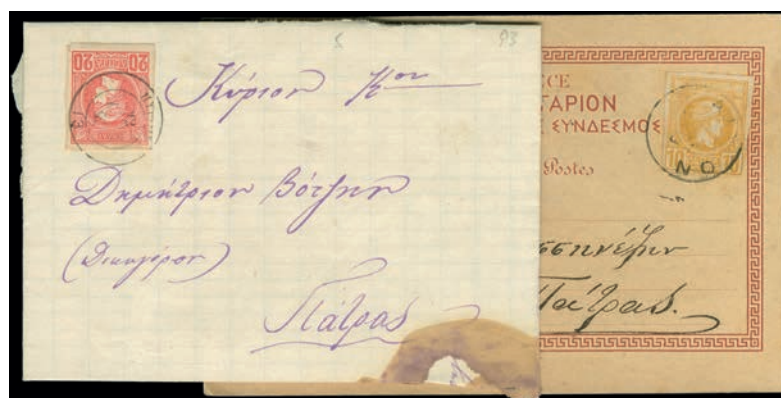 5
93
20 20
Κύριον Κον
Δημήτριον Βότσην
(Δικηγόρον)
Πάτρας
CE
ΤΑΡΙΟΝ
ΣΥΝΔΕΣΜΟΣ
Postes
10
ΝΟ
Πάτρας.